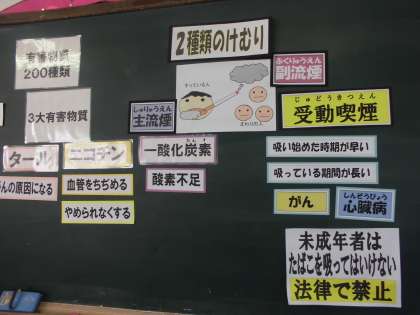 有害物質
200種類
3大有害物質
タール
がんの原因になる
ニコチン
血管をちぢめる
やめられなくする
2種類のけむり
しゅりゅうえん
主流煙
すっている人
まわりの人
ふくりゅうえん
副流煙
いっさんかたんそ
一酸化炭素
酸素不足
じゅどうきつえん
受動喫煙
吸い始めた時期が早い
吸っている期間が長い
がん
しんぞうびょう
心臓病
未成年者は
たばこを吸ってはいけない
法律で禁止